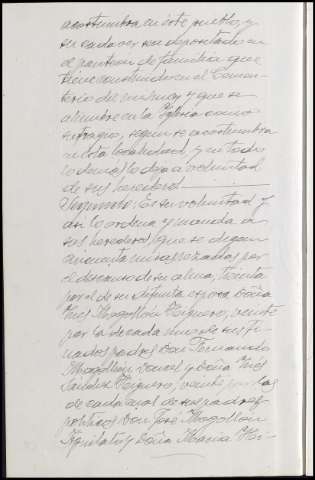 acostumbra en este pueblo, y
su cadaver sea depositado en
el panteon de familia que
tiene construido en el Cemen-
terio del mismo, y que se
alumbre en la Iglesia como
sufragio, segun se acostumbra
en esta localidad, y en todo
lo demás lo deja a voluntad
de sus herederos
Segundo: Es su voluntad y
así lo ordena y manda a
sus herederos, que se digan
cincuenta misas rezadas por
el descanso de su alma, treinta
por el de su difunta esposa Doña
Inés Mogollón Higuero, veinte
por la de cada uno de sus fi-
nados padres Don Fernando
Mogollón y Doña Inés
Higuero, veinte por las
de cada cual de sus padres
politicos Don José Mogollón
Aguilar y Doña Maria Hi-